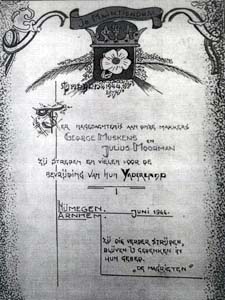 JE MAINTIENDRAI
TER NAGEDACHTENIS AAN ONZE MAKKERS
GEORGE MUSKENS
EN
JULIUS MOORMAN
ZIJ STREDEN EN VIELEN VOOR DE
BEVRIJDING VAN HUN VADERLAND
NIJMEGEN.
ARNHEM.
JUNI 1944.
ZIJ DIE VERDER STRIJDEN,
BLIJVEN U GEDENKEN IN
HUN GEBED.
"DE MAGRIETEN"